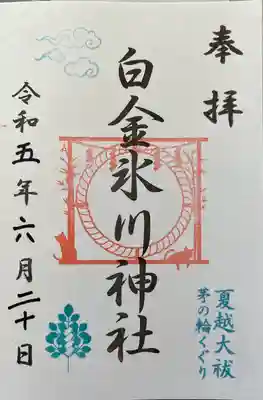 奉拝
白金氷川神社
令和五年六月二十日
夏越大祓
茅の輪くぐり